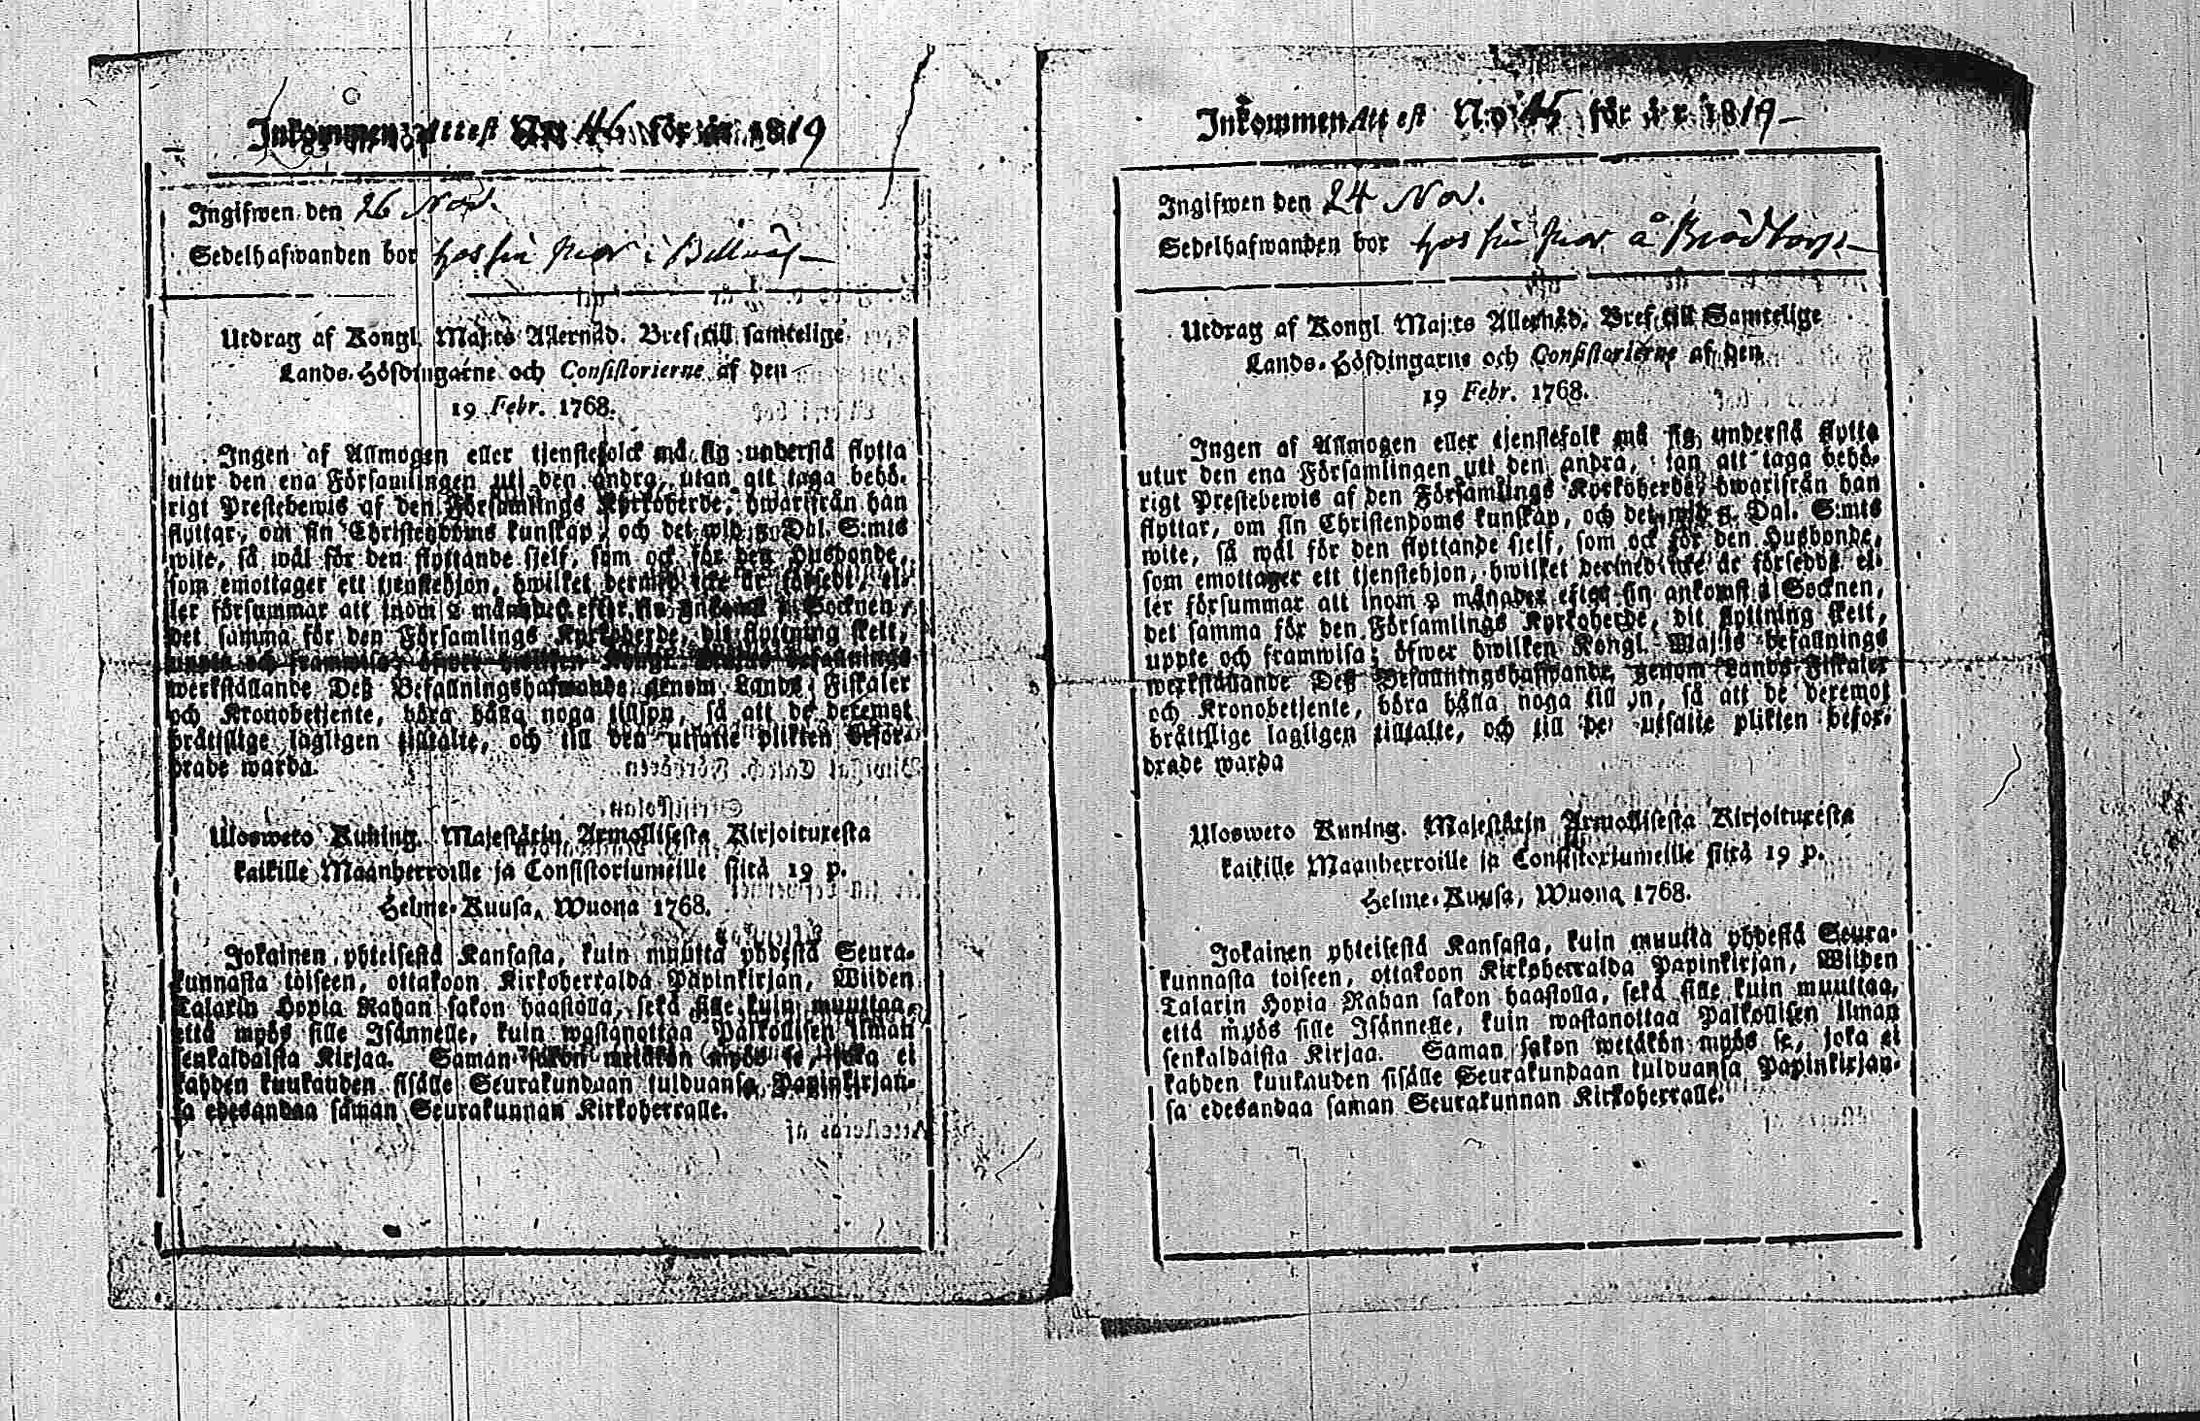 Inkommen Attest No 46 för år 1819
Ingifwen den 26 Nov.
Sedelhafwanden bor hos sin Mor i
Utdrag af Kongl. Maj:ts Allernåd. Bref till samtelige
Lands-Höfdingarne och Consistorierne af den
19 Febr. 1768.
Ingen af Allmogen eller tjenstefolck må sig understå flytta
utur den ena Församlingen uti den andra, utan att taga behö-
rigt Prestebewis af den Församlings Kyrkoherde, hwarifrån han
flyttar, om sin Christendoms kunskap, och det wid 2 Dal. S:mts
wite, så wäl för den flyttande sjelf, som ock för den Husbonde,
som emottager ett tjenstehjon, hwilket dermed icke är försedt, el-
ler försummar att inom 2 månader efter sin ankomst i Socknen,
det samma för den Församlings Kyrkoherde, dit flyttning skett,
uppte och framwisa; öfwer hwilken Kongl. Maj:ts befallnings
werkställande Deß Befallningshafwande, genom Lands-Fiskaler
och Kronobetjente, böra hålla noga tillsyn, så att de deremot
bråttslige lagligen tilltalte, och till den utsatte plikten befor-
drade warda.
Ulosweto Kuning. Majestätin Armollisesta Kirjoituxesta
kaikille Maanherroille ja Consistoriumeille siitä 19 p.
Helme-Kuusa, Wuona 1768.
Jokainen yhteisestä Kansasta, kuin muutta yhdestä Seura-
kunnasta toiseen, ottakoon Kirkoherralda Papinkirjan, Wiiden
Talarin Hopia Rahan sakon haastolla, sekä sille kuin muuttaa,
että myös sille Isännelle, kuin wastanottaa Palkollisen ilman
senkaldaista Kirjaa. Saman sakon wetäkön myös se, joka ei
kahden kuukauden sisälle Seurakundaan tulduansa Papinkirjan-
sa edesandaa saman Seurakunnan Kirkoherralle.
Inkommen Attest No 45 för år 1819
Ingifwen den 24 Nov.
Sedelhafwanden bor hos sin Mor å Brödtorp
Utdrag af Kongl. Maj:ts Allernåd. Bref till Samtelige
Lands-Höfdingarne och Consistorierne af den
19 Febr. 1768.
Ingen af Allmogen eller tjenstefolk må sig understå flytta
utur den ena Församlingen uti den andra, utan att taga behö-
rigt Prestebewis af den Församlings Kyrkoherde, hwarifrån han
flyttar, om sin Christendoms kunskap, och det wid 2 Dal. S:mts
wite, så wäl för den flyttande sjelf, som ock för den Husbonde,
som emottager ett tjenstehjon, hwilket dermed icke är försedt, el-
ler försummar att inom 2 månader efter sin ankomst i Socknen,
det samma för den Församlings Kyrkoherde, dit flyttning skett,
uppte och framwisa; öfwer hwilken Kongl. Maj:ts befallnings
werkställande Deß Befallningshafwande, genom Lands-Fiskaler
och Kronobetjente, böra hålla noga tillsyn, så att de deremot
bråttslige lagligen tilltalte, och till den utsatte plikten befor-
drade warda
Ulosweto Kuning. Majestätin Armollisesta Kirjoituxesta
kaikille Maanherroille ja Consistoriumeille siitä 19 p.
Helme-Kuusa, Wuona 1768.
Jokainen yhteisestä Kansasta, kuin muutta yhdestä Seura-
kunnasta toiseen, ottakoon Kirkoherralda Papinkirjan, Wiiden
Talarin Hopia Rahan sakon haastolla, sekä sille kuin muuttaa,
että myös sille Isännelle, kuin wastanottaa Palkollisen ilman
senkaldaista Kirjaa. Saman sakon wetäkön myös se, joka ei
kahden kuukauden sisälle Seurakundaan tulduansa Papinkirjan-
sa edesandaa saman Seurakunnan Kirkoherralle.